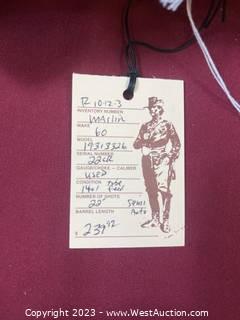 R 10-12-3
INVENTORY NUMBER
Marlin
MAKE
60
MODEL
19313326
SERIAL NUMBER
22LR
GAUGE/CHOKE - CALIBER
used
CONDITION Tube
14+1 Feed
NUMBER OF SHOTS
22" Semi
BARREL LENGTH Auto
$ 239.92
Copyright © 2023 - WestAuction.com